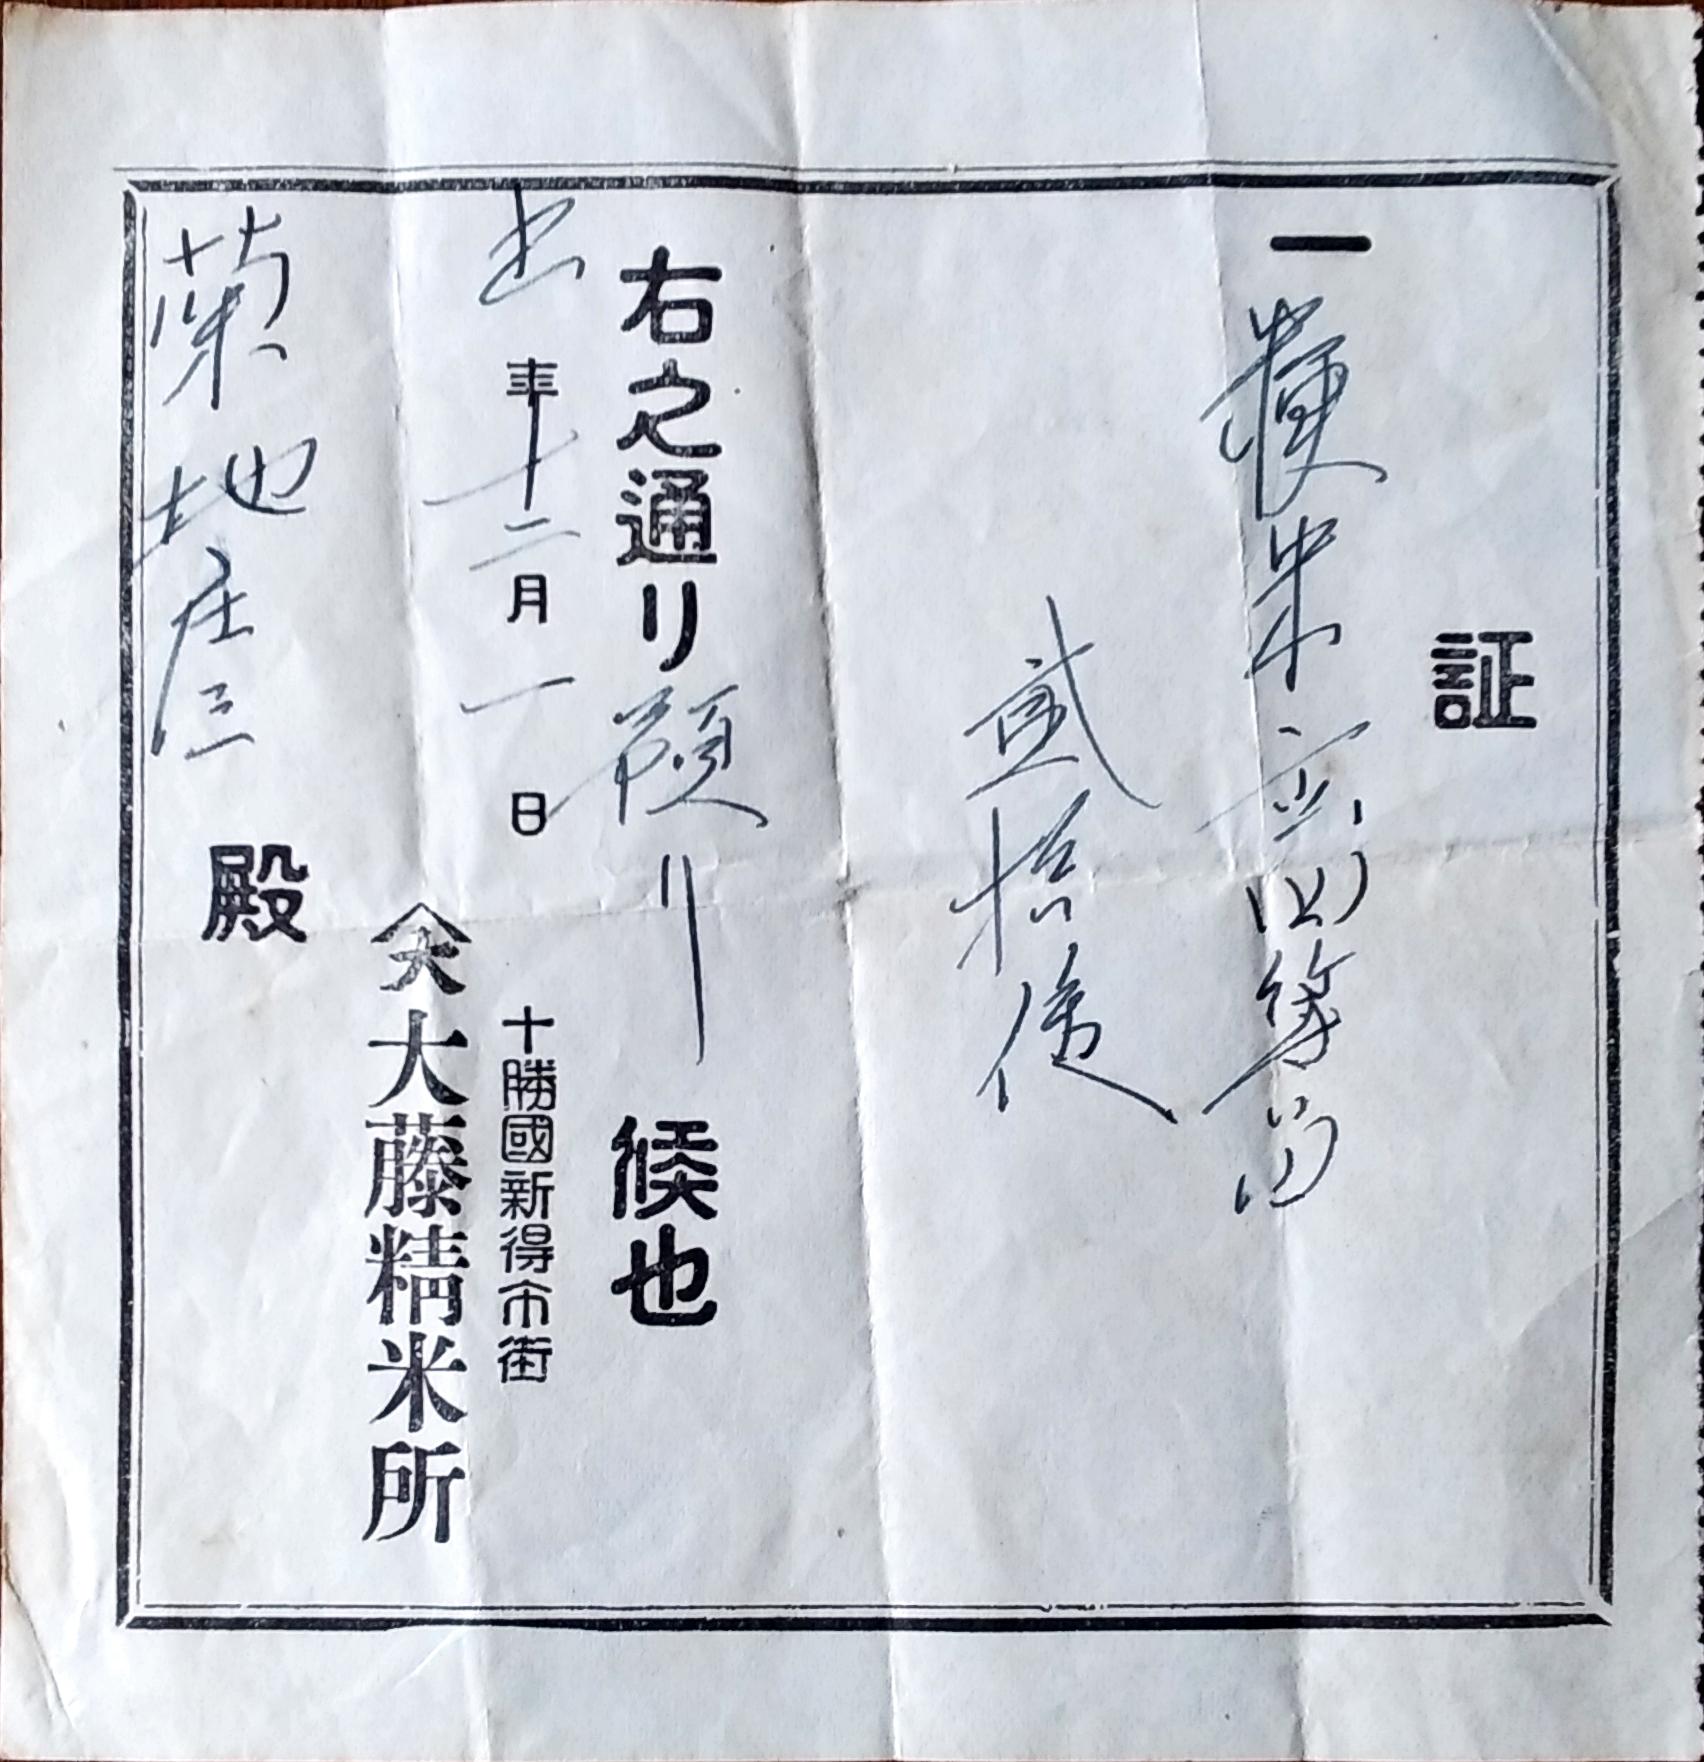 証
一 糯米 六四等
貳拾俵
右之通り預り候也
年十二月一日
十勝國新得市街
大 大藤精米所
菊地庄三殿